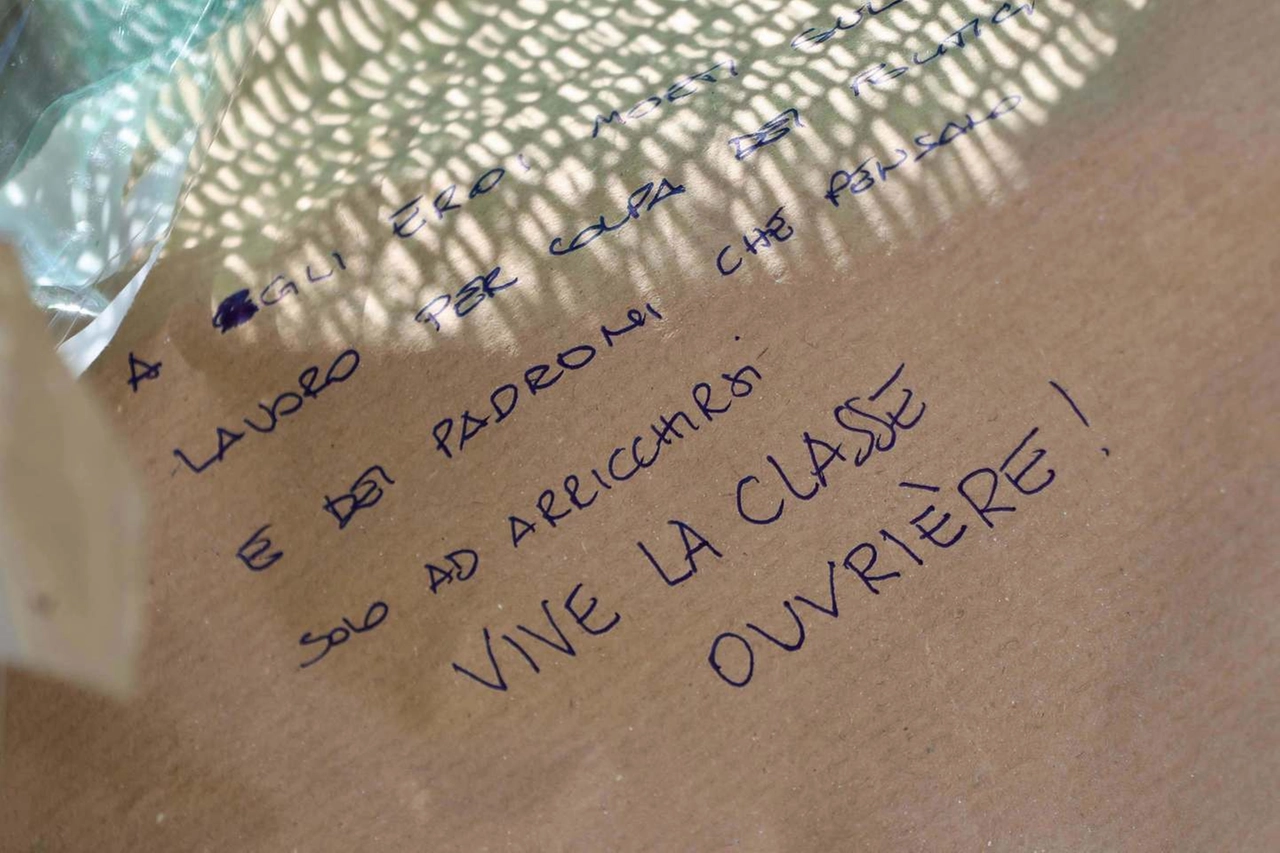 A GLI EROI MORTI SUL
LAVORO PER COLPA DEI POLITICI
E DEI PADRONI CHE PENSANO
SOLO AD ARRICCHIRSI
VIVE LA CLASSE
OUVRIÈRE !